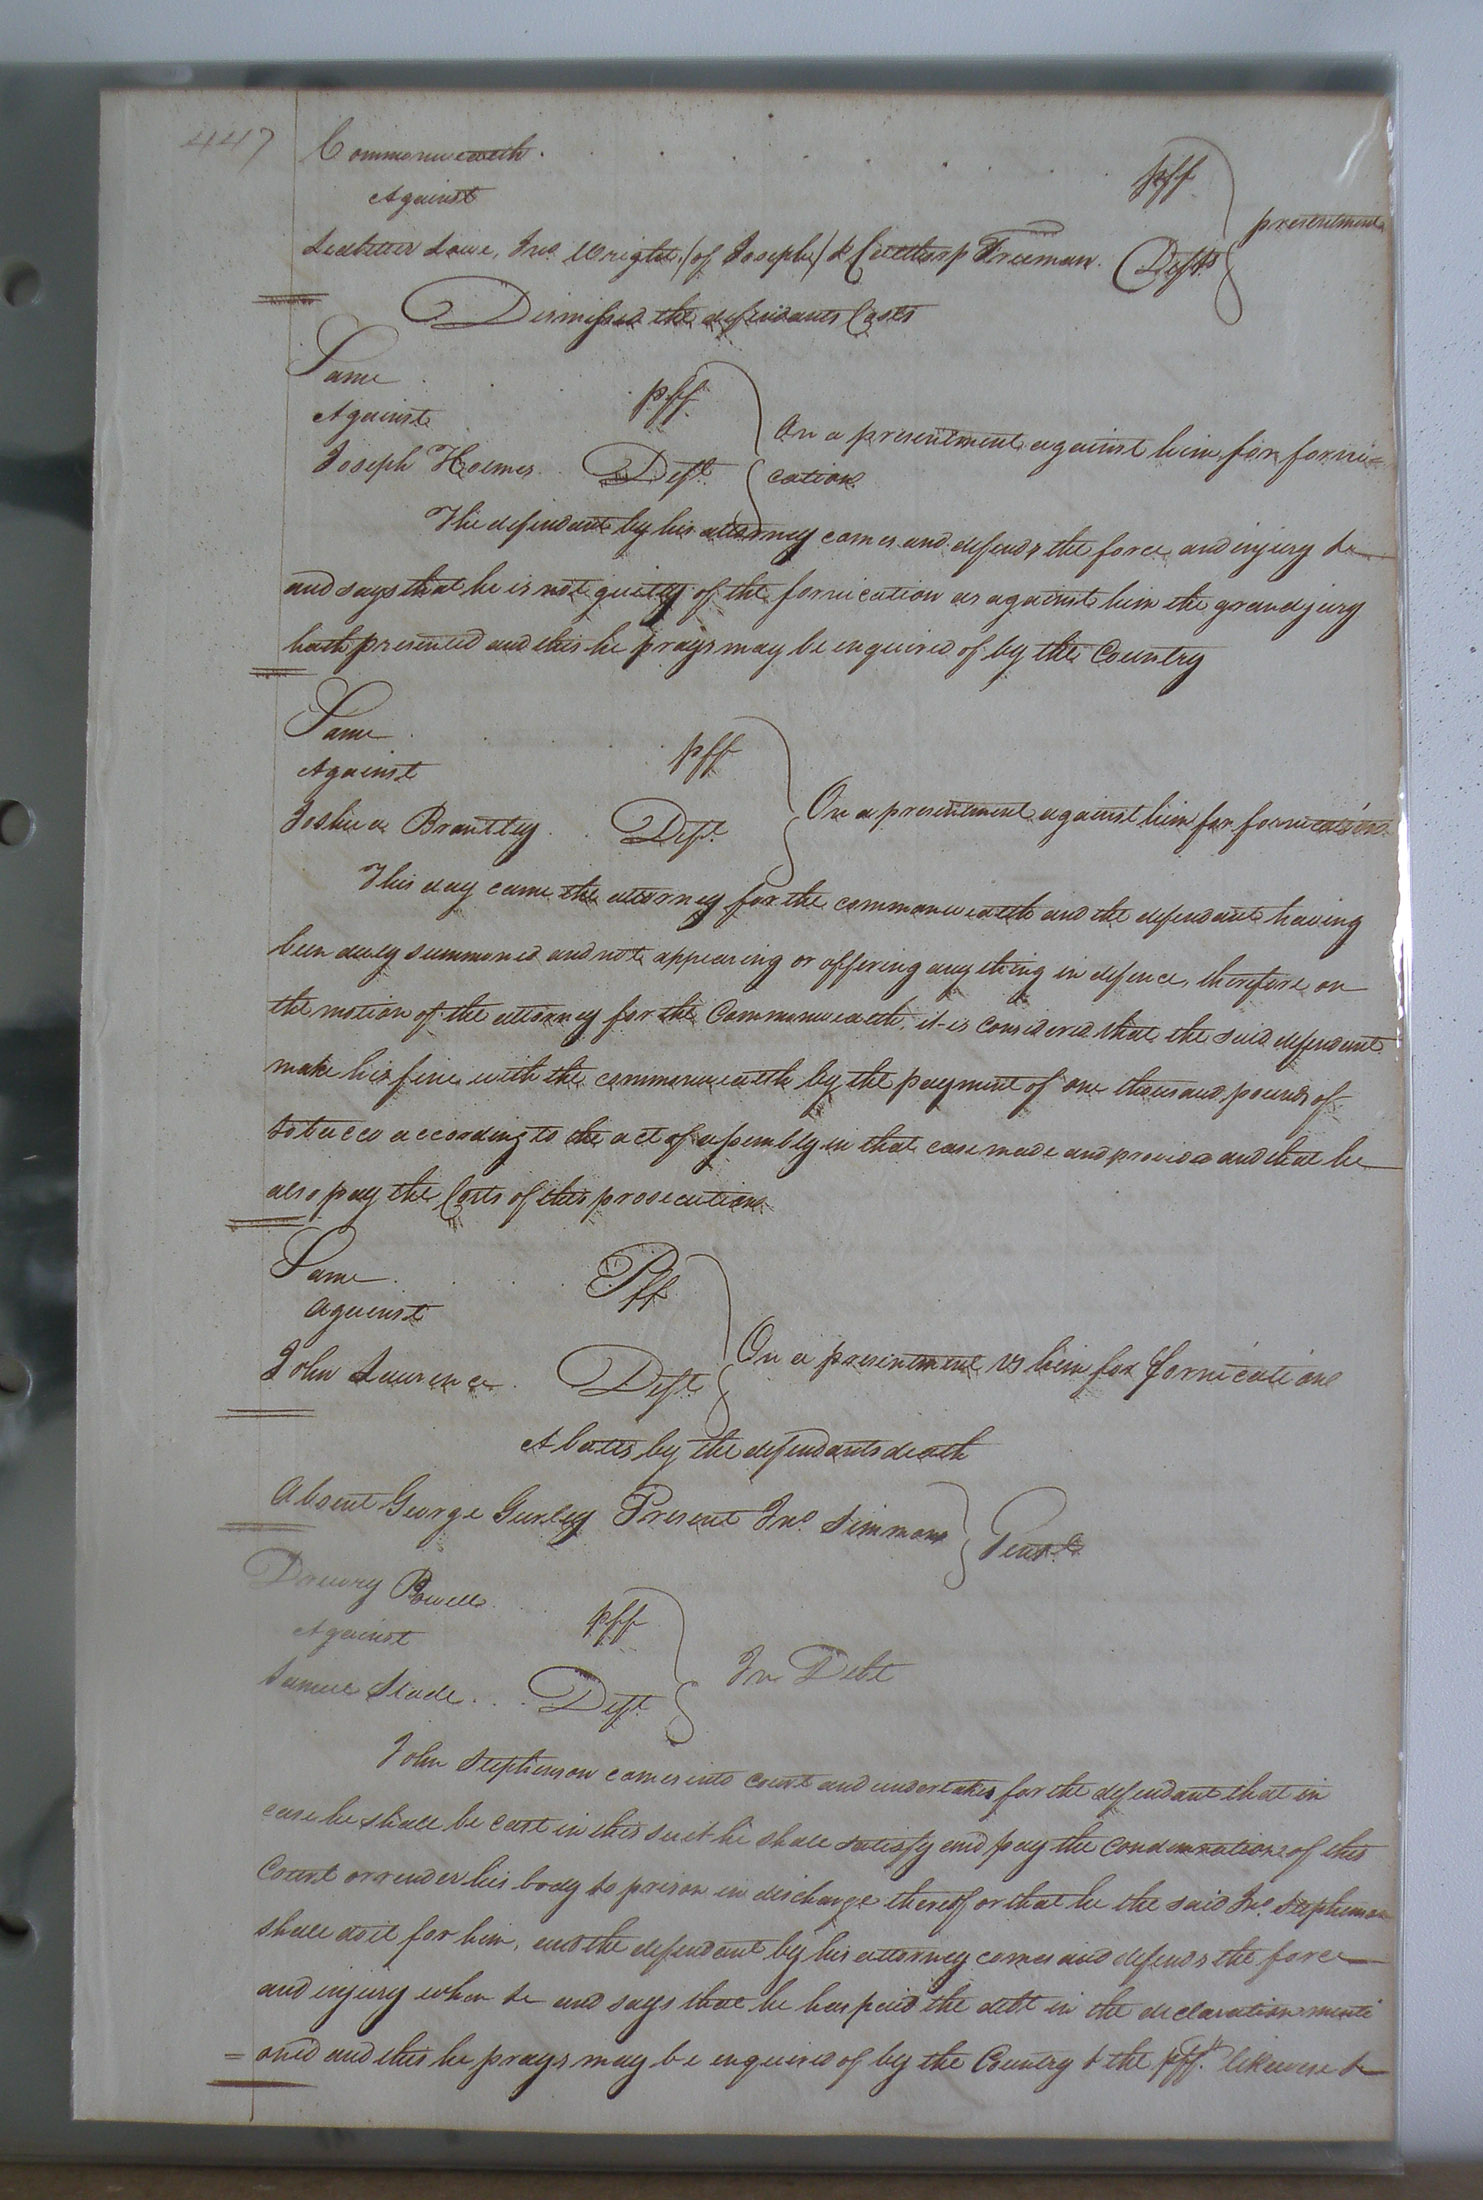 447
Commonwealth . . . . . . . pff
Against
Ledbetter Lowe, Jno. Wright (of Joseph) & Culthorp Freeman. Defts } presentment
Dismissed the defendants Costs
Same . . . pff
Against
Joseph Holmes . . Deft. } On a presentment against him for forni=
cation
The defendant by his attorney comes and defends the force and injury &c
and says that he is not guilty of the fornication as against him the grand jury
hath presented and this he prays may be enquired of by the Country
Same . . . pff
Against
Joshua Brantley . . Deft. } On a presentment against him for fornication
This day came the attorney for the commonwealth and the defendant having
been duly summoned and not appearing or offering any thing in defence, therefore on
the motion of the attorney for the Commonwealth, it is considered that the said defendant
make his fine with the commonwealth by the payment of one thousand pounds of
tobacco according to the act of assembly in that case made and provided and that he
also pay the Costs of this prosecution
Same . . . Pff
against
John Laurence . Deft. } On a presentment vs him for fornication
Abates by the defendants death
Absent George Gurley Present Jno. Simmons } Gent.
Drewry Powell . . pff
Against
Samuel Slade . . . Deft } In Debt
John Stephenson comes into court and undertakes for the defendant that in
case he shall be cast in this suit he shall satisfy and pay the condemnation of this
Court or render his body to prison in discharge thereof or that he the said Jno. Stephenson
shall do it for him, and the defendant by his attorney comes and defends the force
and injury when &c and says that he has paid the debt in the declaration menti
= oned and this he prays may be enquired of by the Country & the pff. likewise &c